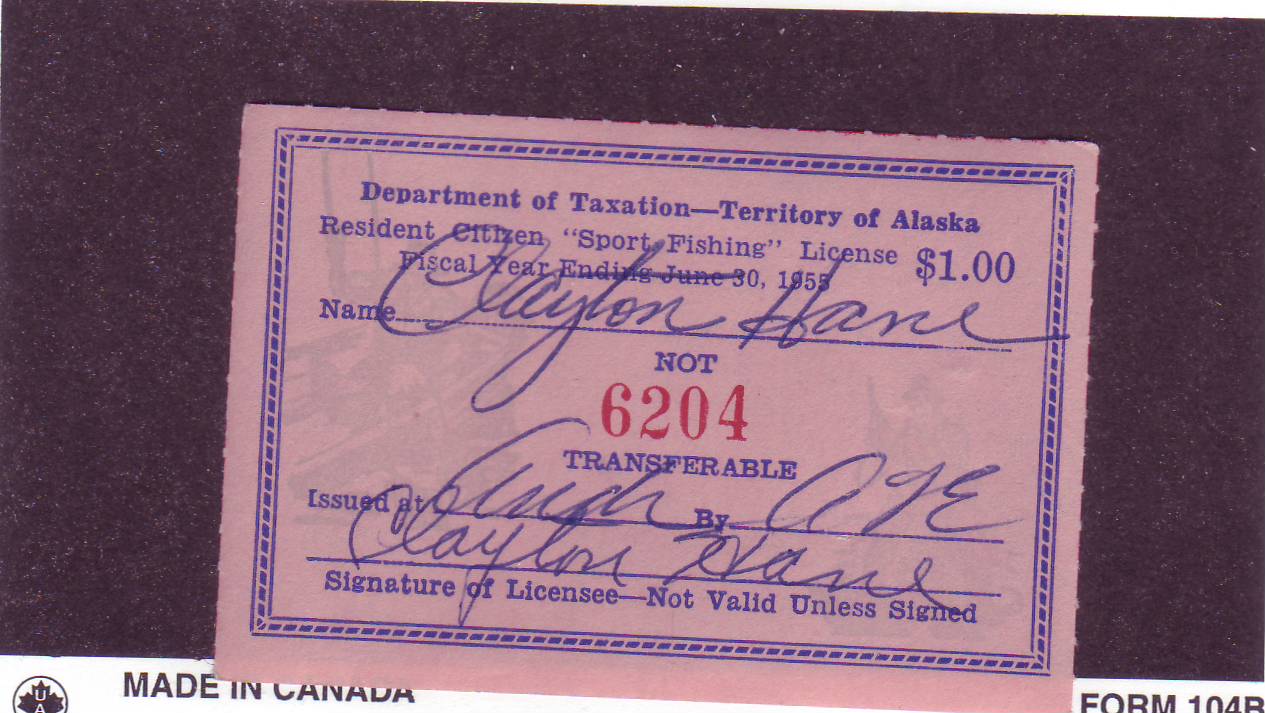 Department of Taxation—Territory of Alaska
Resident Citizen "Sport Fishing" License $1.00
Fiscal Year Ending June 30, 1955
Name Clayton Hane
NOT
6204
TRANSFERABLE
Issued at Anch By
Clayton Hane
Signature of Licensee—Not Valid Unless Signed
MADE IN CANADA
FORM 104B